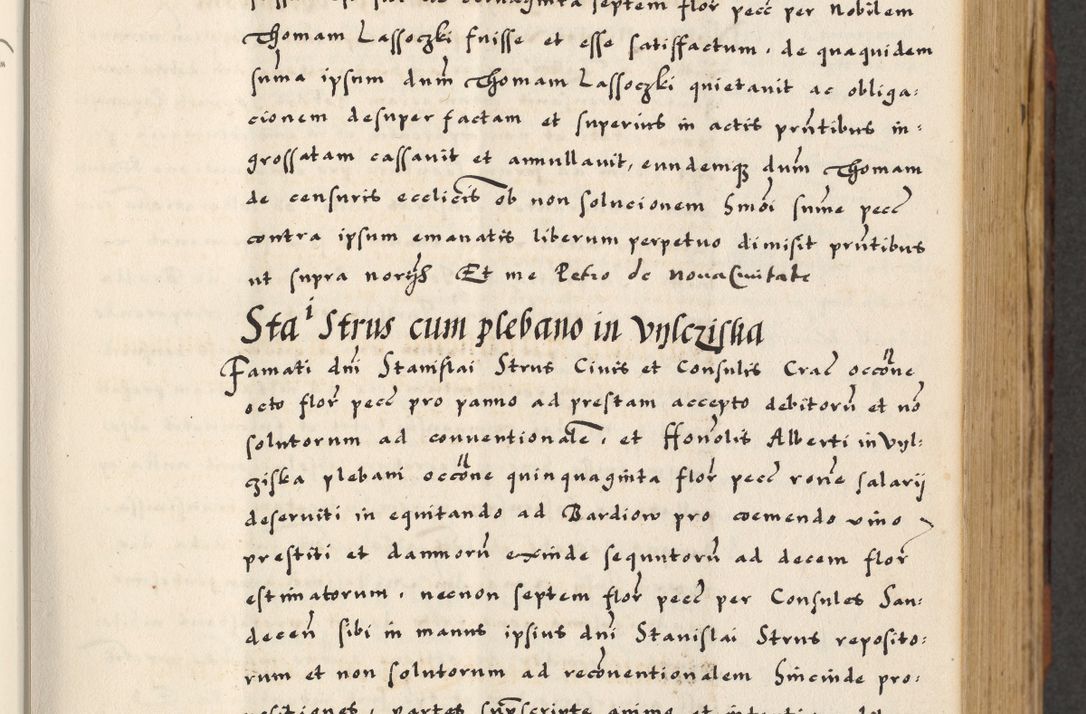 septem flor̄ pecc̄ per Nobilem
Thomam Lassoczki fuisse et esse satisffactum, de quaquidem
sum̄a ipsum dum̄ Thomam Lassoczki quietauit ac obliga-
cionem desuper factam et superius in actis prn̄tibus in-
grossatam cassauit et annullauit, eundemqꝫ dum̄ Thomam
de censuris ecclicīs ob non solucionem hmōi sum̄e pecc̄
contra ipsum emanatis liberum perpetuo dimisit prn̄tibus
ut supra Et me Petro de Noua Ciuitate
Stai Strus cum plebano in Vylcziska
Famati dn̄i Stanislai Strus Ciuis et Consulis Crac̄ occōne
octo flor̄ pecc̄ pro panno ad prestam accepto debitorū et nō
solutorum ad conuentionalē, et Honōlis Alberti in Vyl-
cziska plebani occōne quinquaginta flor̄ pecc̄ ron̄e salarij
deseruiti in equitando ad Bardiow pro coemendo vino
prestiti et damnorū exinde sequutorū ad decem flor̄
estimatorum, necnon septem flor̄ pecc̄ per Consules San-
decen̄ sibi in manus ipsius dn̄i Stanislai Strus reposito-
rum et non solutorum ad recōnuentionalem hincinde pro-
positiones, partes